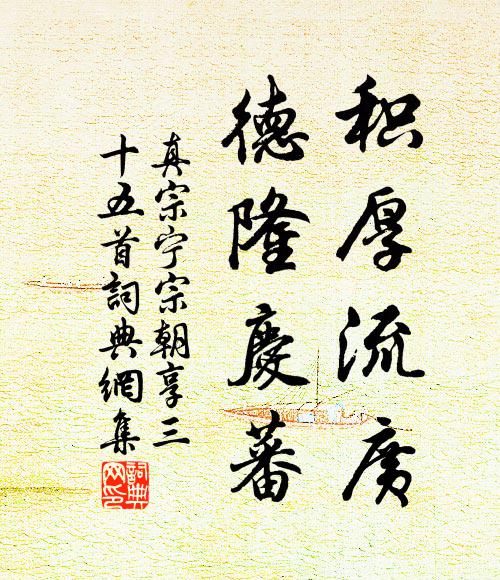 积厚流广
德隆慶蕃
真宗宁宗朝享三
十五首詞典網集
詞典网印